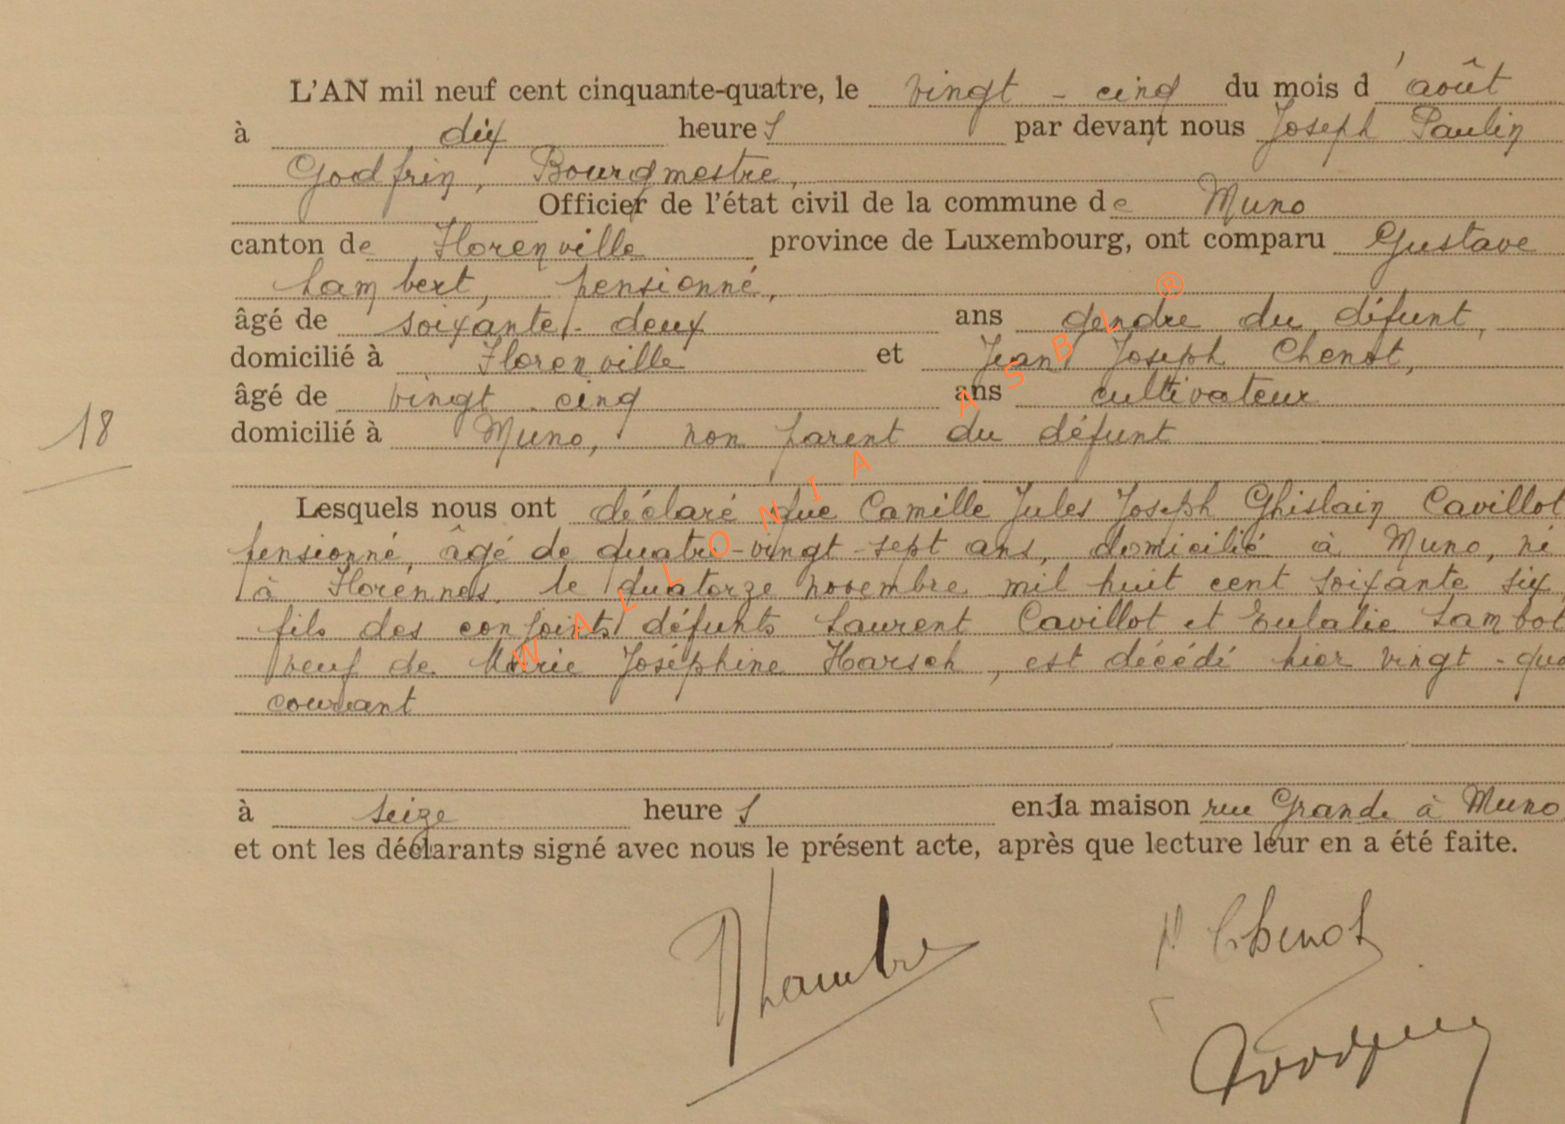 L'AN mil neuf cent cinquante-quatre, le vingt - cinq du mois d'août
à dix heures par devant nous Joseph Paulin
Godfrin, Bourgmestre,
Officier de l'état civil de la commune de Muno
canton de Florenville province de Luxembourg, ont comparu Gustave
Lambert, pensionné,
âgé de soixante-deux ans gendre du défunt,
domicilié à Florenville et Jean Joseph Chenot,
âgé de vingt cinq ans cultivateur
18
domicilié à Muno, non parent du défunt
Lesquels nous ont déclaré que Camille Jules Joseph Ghislain Cavillot
pensionné, âgé de quatre-vingt-sept ans, domicilié à Muno, né
à Florennes, le quatorze novembre mil huit cent soixante six
fils des conjoints défunts Laurent Cavillot et Eulalie Lambot
veuf de Marie Joséphine Harsch, est décédé hier vingt-qua
courant
à seize heures en la maison rue Grande à Muno
et ont les déclarants signé avec nous le présent acte, après que lecture leur en a été faite.
Chenot
WALLONIA ASBL ®